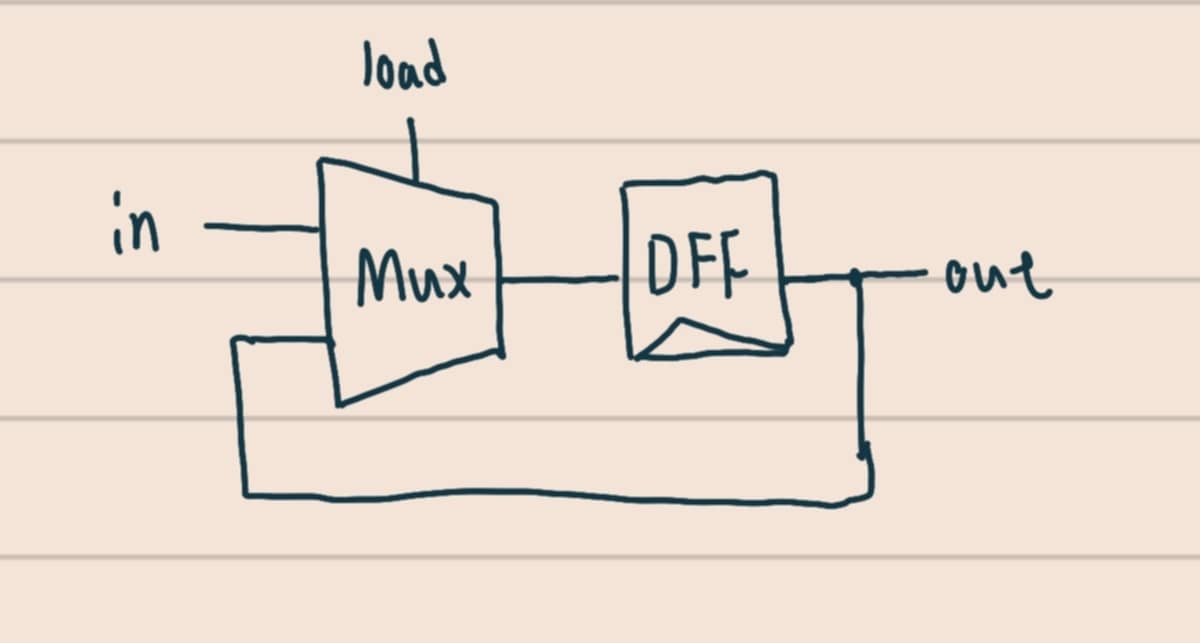 load
in
Mux
DFF
out